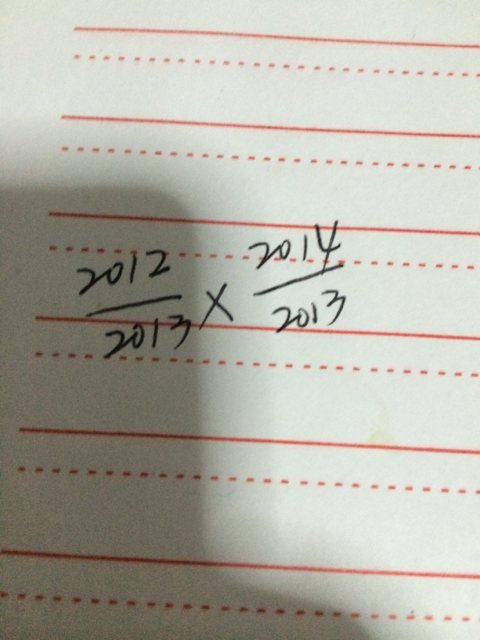 2012/2013 × 2014/2013